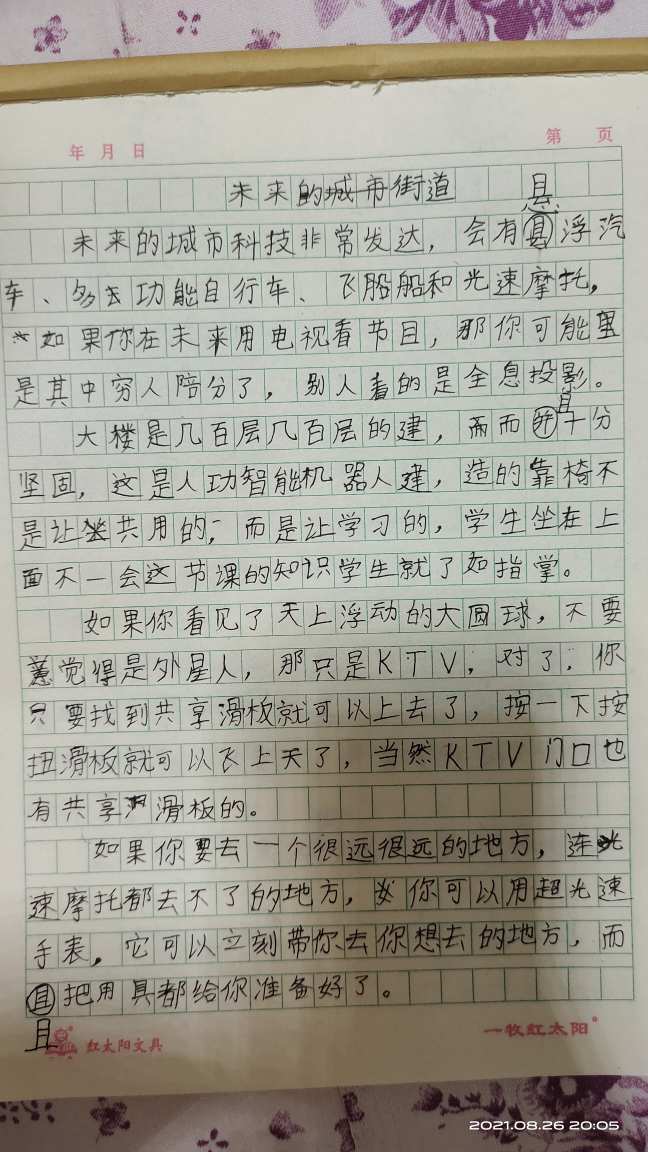 年 月 日
第 页
未来的城市街道
悬
未来的城市科技非常发达，会有悬浮汽
车、多功能自行车、飞船和光速摩托，
如果你在未来用电视看节目，那你可能
是其中穷人陪分了，别人看的是全息投影。
且
大楼是几百层几百层的建，而十分
坚固，这是人功智能机器人建，造的靠椅不
是让坐共用的，而是让学习的，学生坐在上
面不一会这节课的知识学生就了如指掌。
如果你看见了天上浮动的大圆球，不要
觉得是外星人，那只是KTV，对了，你
只要找到共享滑板就可以上去了，按一下按
扭滑板就可以飞上天了，当然KTV门口也
有共享滑板的。
如果你要去一个很远很远的地方，连光
速摩托都去不了的地方，你可以用超光速
手表，它可以立刻带你去你想去的地方，而
且把用具都给你准备好了。
且
红太阳文具
一牧红太阳
2021.08.26 20:05